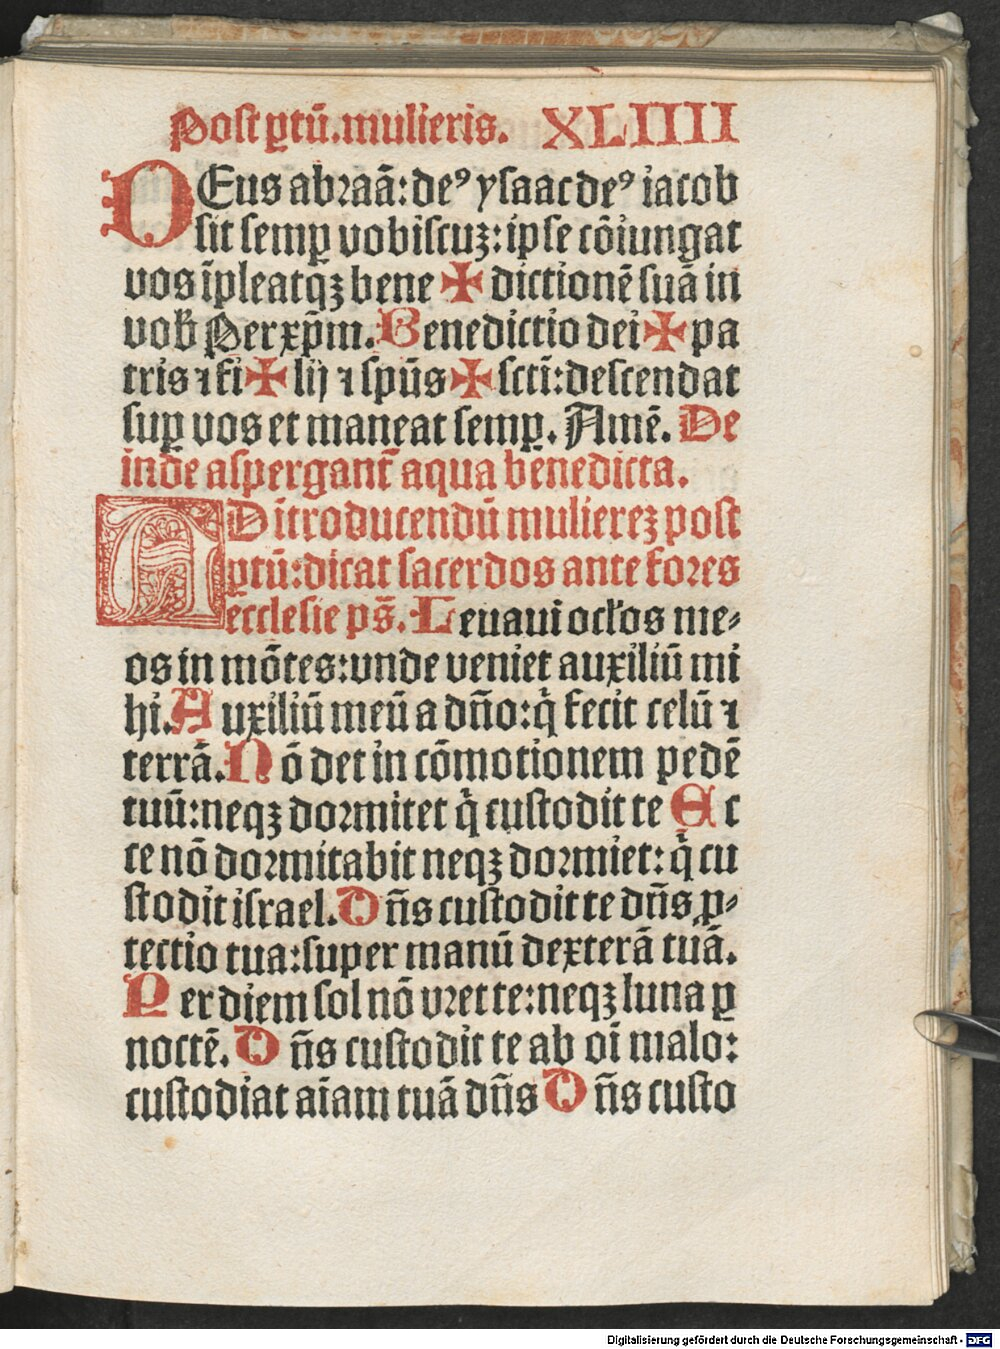 Post ꝑtū. mulieris. XLIIII
DEus abraā: deꝰ ysaac deꝰ iacob
sit semꝑ vobiscuz: ipse cōiungat
vos īpleatqꝫ bene ✠ dictionē suā in
vob̄ Per xp̄m. Benedictio dei ✠ pa
tris ⁊ fi ✠ lij ⁊ spūs ✠ scti̅: descendat
suꝑ vos et maneat semꝑ. Amē. De
inde aspergant̄ aqua benedicta.
AD ītroducendū mulierez post
ꝑtū: dicat sacerdos ante fores
ecclesie ps̄. Leuaui ocl̄os me⸗
os in mōtes: vnde veniet auxiliū mi
hi. Auxiliū meū a dño: q̇ fecit celū ⁊
terrā. Nō det in cōmotionem pedē
tuū: neqꝫ dormitet q̇ custodit te Ec
ce nō dormitabit neqꝫ dormiet: q̇ cu
stodit israel. Dñs custodit te dñs ꝓ⸗
tectio tua: super manū dexterā tuā.
Per diem sol nō vret te: neqꝫ luna ꝑ
noctē. Dñs custodit te ab oī malo:
custodiat aīam tuā dñs Dñs custo
Digitalisierung gefördert durch die Deutsche Forschungsgemeinschaft - DFG